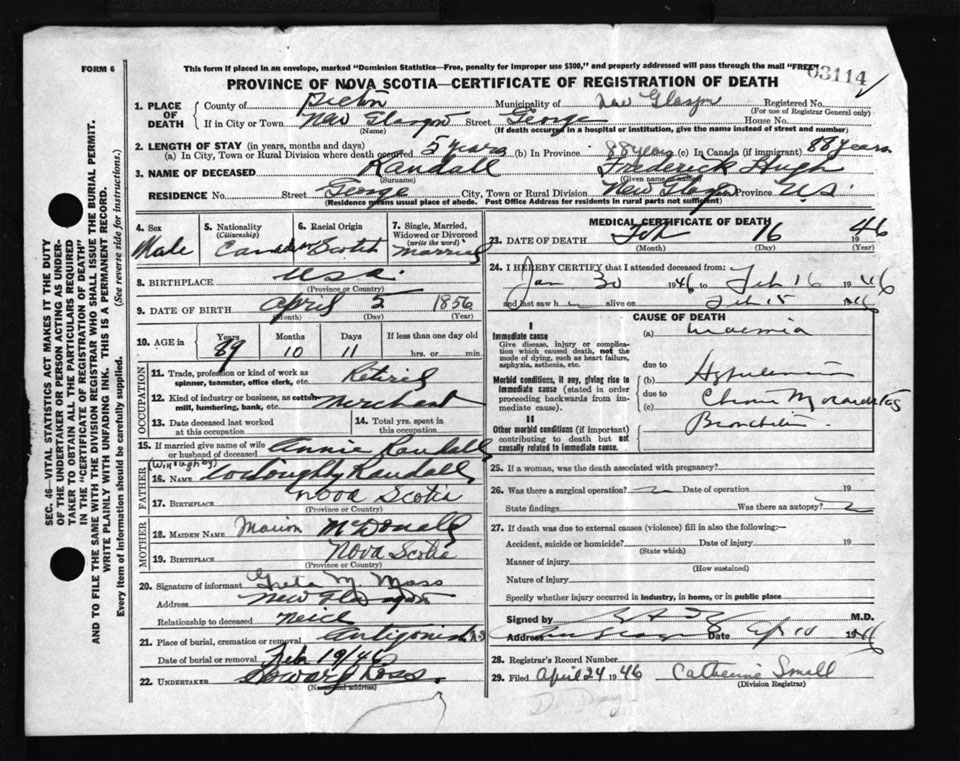 This form if placed in an envelope, marked "Dominion Statistics—Free, penalty for improper use $300," and properly addressed will pass through the mail "FREE"
FORM 6
03114
PROVINCE OF NOVA SCOTIA—CERTIFICATE OF REGISTRATION OF DEATH
1. PLACE OF DEATH County of Pictou Municipality of New Glasgow Registered No.
(For use of Registrar General only)
If in City or Town New Glasgow Street George House No.
(Name) (If death occurred in a hospital or institution, give the name instead of street and number)
2. LENGTH OF STAY (in years, months and days)
(a) In City, Town or Rural Division where death occurred 5 years (b) In Province 88 years (c) In Canada (if immigrant) 88 years
3. NAME OF DECEASED Randall Frederick Hugh
(Surname) (Given name)
RESIDENCE No. Street George City, Town or Rural Division New Glasgow Province N.S.
(Residence means usual place of abode. Post Office Address for residents in rural parts not sufficient)
4. Sex Male
5. Nationality (Citizenship) Canadian
6. Racial Origin Scotch
7. Single, Married, Widowed or Divorced (write the word) Married
8. BIRTHPLACE U.S.A.
(Province or Country)
9. DATE OF BIRTH April 5 1856
(Month) (Day) (Year)
10. AGE in Years 89 Months 10 Days 11 If less than one day old hrs. or min.
OCCUPATION
11. Trade, profession or kind of work as spinner, teamster, office clerk, etc. Retired
12. Kind of industry or business, as cotton mill, lumbering, bank, etc. Merchant
13. Date deceased last worked at this occupation
14. Total yrs. spent in this occupation
15. If married give name of wife or husband of deceased Annie Randall
FATHER
(Willoughby)
16. NAME Willoughby Randall
17. BIRTHPLACE Nova Scotia
(Province or Country)
MOTHER
18. MAIDEN NAME Marion McDonald
19. BIRTHPLACE Nova Scotia
(Province or Country)
20. Signature of informant Greta M
Address New Glasgow
Relationship to deceased Neice
21. Place of burial, cremation or removal Antigonish N.S.
Date of burial or removal Feb 19/46
22. UNDERTAKER
(Name and address)
MEDICAL CERTIFICATE OF DEATH
23. DATE OF DEATH Feb 16 1946
(Month) (Day) (Year)
24. I HEREBY CERTIFY that I attended deceased from:
Jan 30 1946 to Feb 16 1946
and last saw h alive on Feb 15 1946
CAUSE OF DEATH
I
Immediate cause
Give disease, injury or complication which caused death, not the mode of dying, such as heart failure, asphyxia, asthenia, etc.
(a) Uraemia
due to
Morbid conditions, if any, giving rise to immediate cause (stated in order proceeding backwards from immediate cause).
(b)
due to
(c) Chronic Myocarditis
II
Other morbid conditions (if important) contributing to death but not causally related to immediate cause.
Bronchitis
25. If a woman, was the death associated with pregnancy?
26. Was there a surgical operation? Date of operation 19
State findings Was there an autopsy?
27. If death was due to external causes (violence) fill in also the following:—
Accident, suicide or homicide? Date of injury 19
(State which)
Manner of injury
(How sustained)
Nature of injury
Specify whether injury occurred in industry, in home, or in public place
Signed by M.D.
Address New Glasgow Date 10 1946
28. Registrar's Record Number
29. Filed April 24 1946 Catherine Small
(Division Registrar)
SEC. 46—VITAL STATISTICS ACT MAKES IT THE DUTY
OF THE UNDERTAKER OR PERSON ACTING AS UNDERTAKER TO OBTAIN ALL THE PARTICULARS REQUIRED
IN THE "CERTIFICATE OF REGISTRATION OF DEATH"
AND TO FILE THE SAME WITH THE DIVISION REGISTRAR WHO SHALL ISSUE THE BURIAL PERMIT.
WRITE PLAINLY WITH UNFADING INK. THIS IS A PERMANENT RECORD.
Every item of information should be carefully supplied. (See reverse side for instructions.)